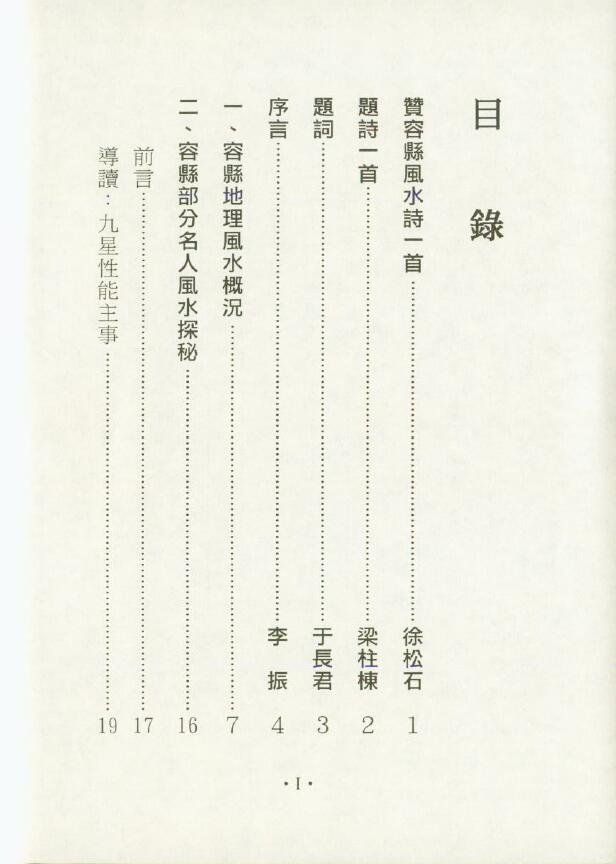 目錄
贊容縣風水詩一首……徐松石 1
題詩一首……梁柱棟 2
題詞……于長君 3
序言……李振 4
一、容縣地理風水概況……7
二、容縣部分名人風水探秘……16
前言……17
導讀：九星性能主事……19
·I·